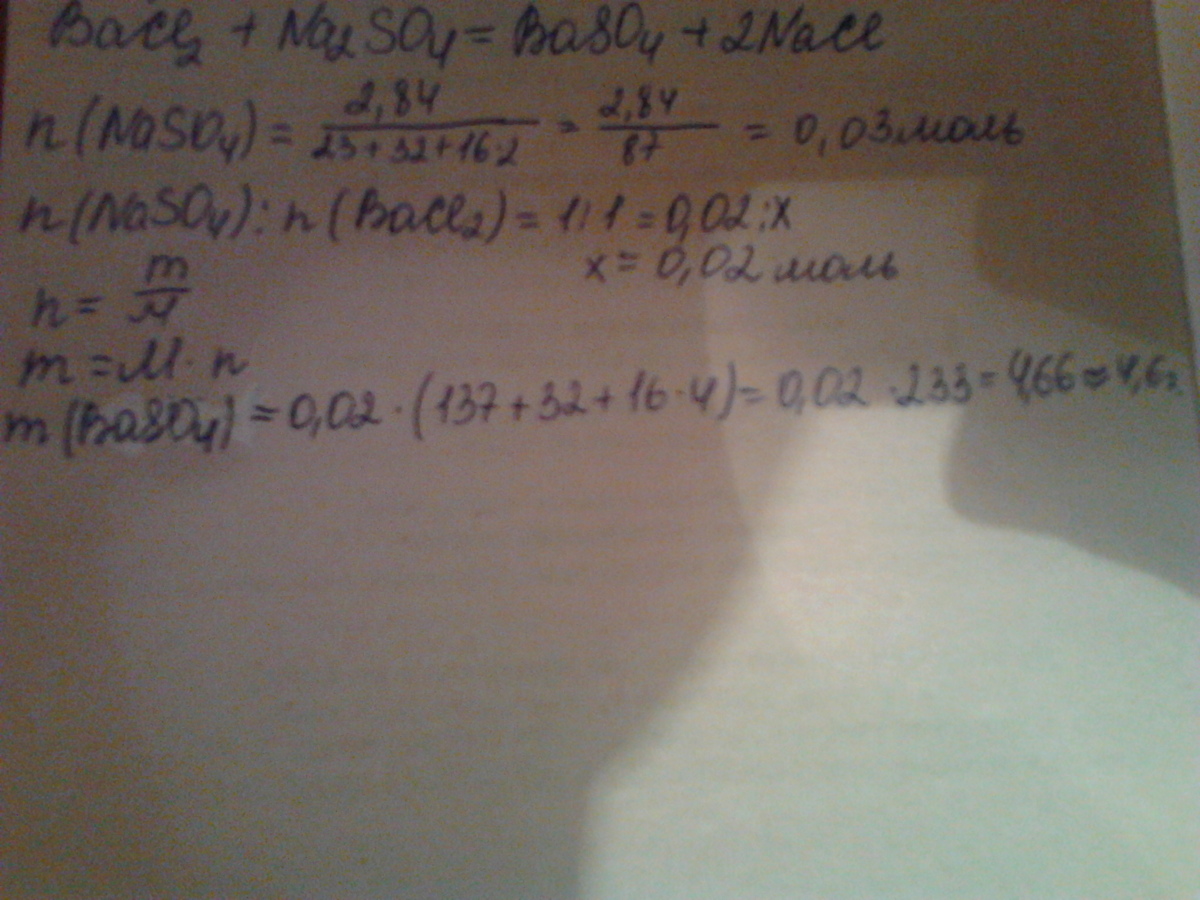 BaCl₂ + Na₂SO₄ = BaSO₄ + 2NaCl
n(NaSO₄) = 2,84 / 23+32+16·2 = 2,84 / 87 = 0,03моль
n(NaSO₄) : n(BaCl₂) = 1:1 = 0,02:x
x = 0,02 моль
n = m / M
m = M · n
m(BaSO₄) = 0,02 · (137+32+16·4) = 0,02 · 233 = 4,66 ≈ 4,6г.